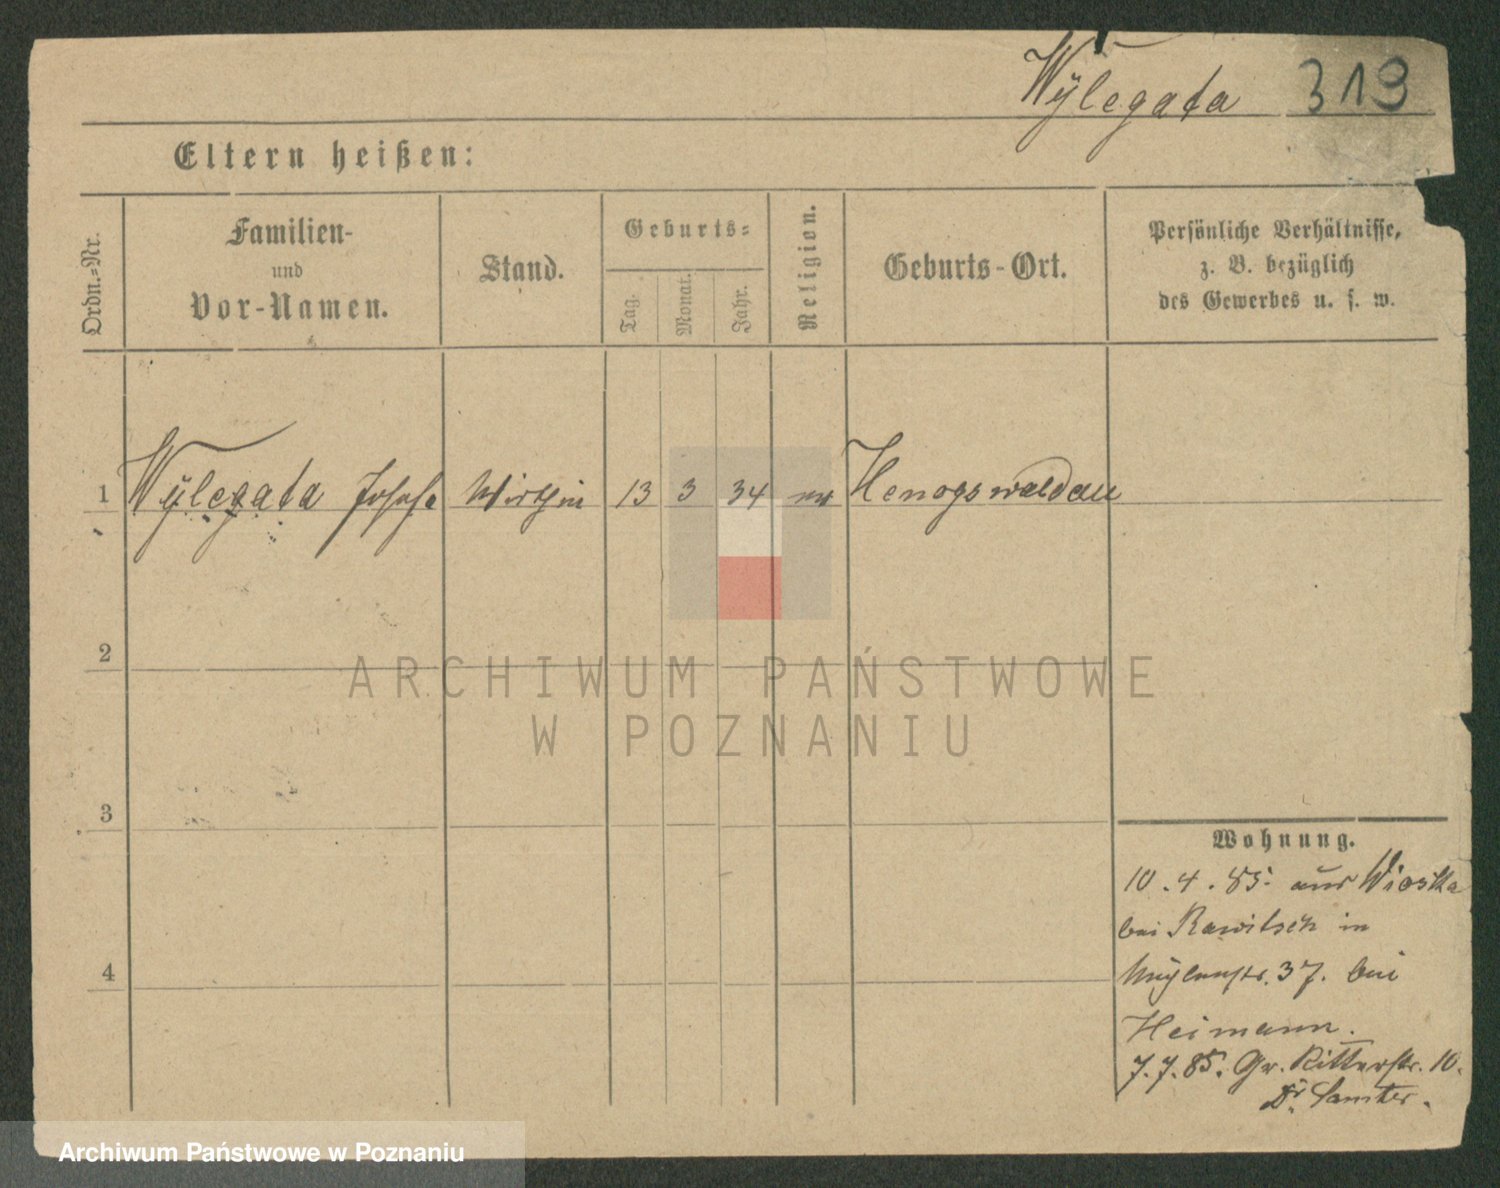 Wÿlegała 319
Eltern heißen:
Ordn.=Nr.
Familien-
und
Vor-Namen.
Stand.
Geburts=
Tag.
Monat.
Jahr.
Religion.
Geburts-Ort.
Persönliche Verhältnisse,
z. B. bezüglich
des Gewerbes u. s. w.
1 Wÿlegała Josefa Wirthin 13 3 34
2
3
4
ARCHIWUM PAŃSTWOWE
W POZNANIU
Wohnung.
10.4.85. aus Wioska
bei Rawitsch in
Mühlenstr. 37. bei
Heimann.
7.7.85. Gr. Ritterstr. 10.
Dr. Samter.
Archiwum Państwowe w Poznaniu